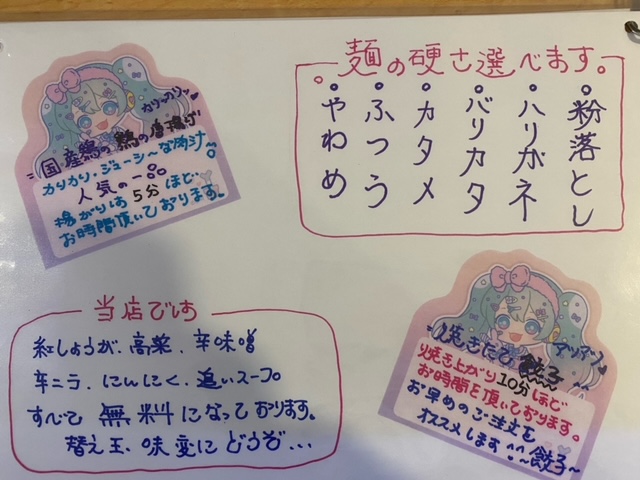 麺の硬さ選べます。
•粉落とし
•ハリガネ
•バリカタ
•カタメ
•ふつう
•やわめ
カリッカリッ
国産鶏の鶏の唐揚げ
カリカリ・ジューシーな肉汁
人気の一品
揚がりは5分ほど
お時間頂いております。
当店では
紅しょうが、高菜、辛味噌
辛ニラ、にんにく、追いスープ
すべて無料になっております。
替え玉、味変にどうぞ...
アツアツ
焼きたて餃子
焼き上がり10分ほど
お時間を頂いております。
お早めのご注文を
オススメします 餃子~